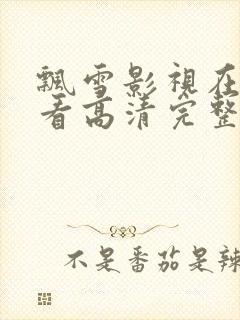 飄雪影視在
看高清完整
不是番茄是辣